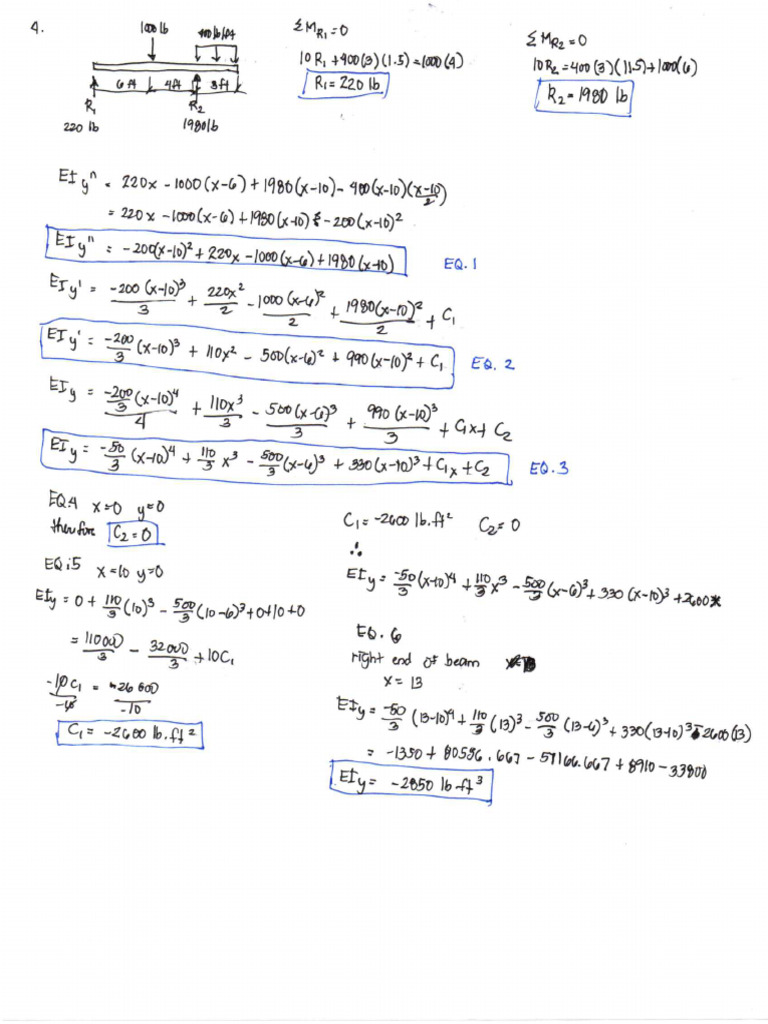 4.
1000 lb
400 lb/ft
6 ft 4ft 3ft
R₁ R₂
220 lb 1980 lb
ΣM_R₁ = 0
10R₁ + 400(3)(1.5) = 1000(4)
R₁ = 220 lb
ΣM_R₂ = 0
10R₂ = 400(3)(11.5) + 1000(6)
R₂ = 1980 lb
EI y" = 220x - 1000(x-6) + 1980(x-10) - 400(x-10)(x-10)/2
= 220x - 1000(x-6) + 1980(x-10) - 200(x-10)²
EI y" = -200(x-10)² + 220x - 1000(x-6) + 1980(x-10) EQ. 1
EI y' = -200(x-10)³/3 + 220x²/2 - 1000(x-6)²/2 + 1980(x-10)²/2 + C₁
EI y' = -200/3 (x-10)³ + 110x² - 500(x-6)² + 990(x-10)² + C₁ EQ. 2
EI y = -200/3 (x-10)⁴/4 + 110x³/3 - 500(x-6)³/3 + 990(x-10)³/3 + C₁x + C₂
EI y = -50/3 (x-10)⁴ + 110/3 x³ - 500/3 (x-6)³ + 330(x-10)³ + C₁x + C₂ EQ. 3
EQ.4 x=0 y=0
therefore C₂ = 0
EQ.5 x=10 y=0
EI y = 0 + 110/3 (10)³ - 500/3 (10-6)³ + 0 + 10 + 0
= 110000/3 - 32000/3 + 10C₁
-10C₁/-10 = 26000/-10
C₁ = -2600 lb.ft²
C₁ = -2600 lb.ft² C₂ = 0
∴
EI y = -50/3 (x-10)⁴ + 110/3 x³ - 500/3 (x-6)³ + 330(x-10)³ + 2600x
EQ. 6
right end of beam
x = 13
EI y = -50/3 (13-10)⁴ + 110/3 (13)³ - 500/3 (13-6)³ + 330(13-10)³ - 2600(13)
= -1350 + 80556.667 - 57166.667 + 8910 - 33800
EI y = -2850 lb-ft³